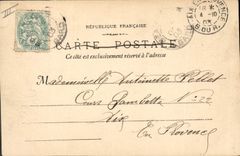 RÉPUBLIQUE FRANÇAISE
CARTE POSTALE
Ce côté est exclusivement réservé à l'adresse
Mademoiselle Antoinette
Cours Gambetta N° 22
Aix
En Provence